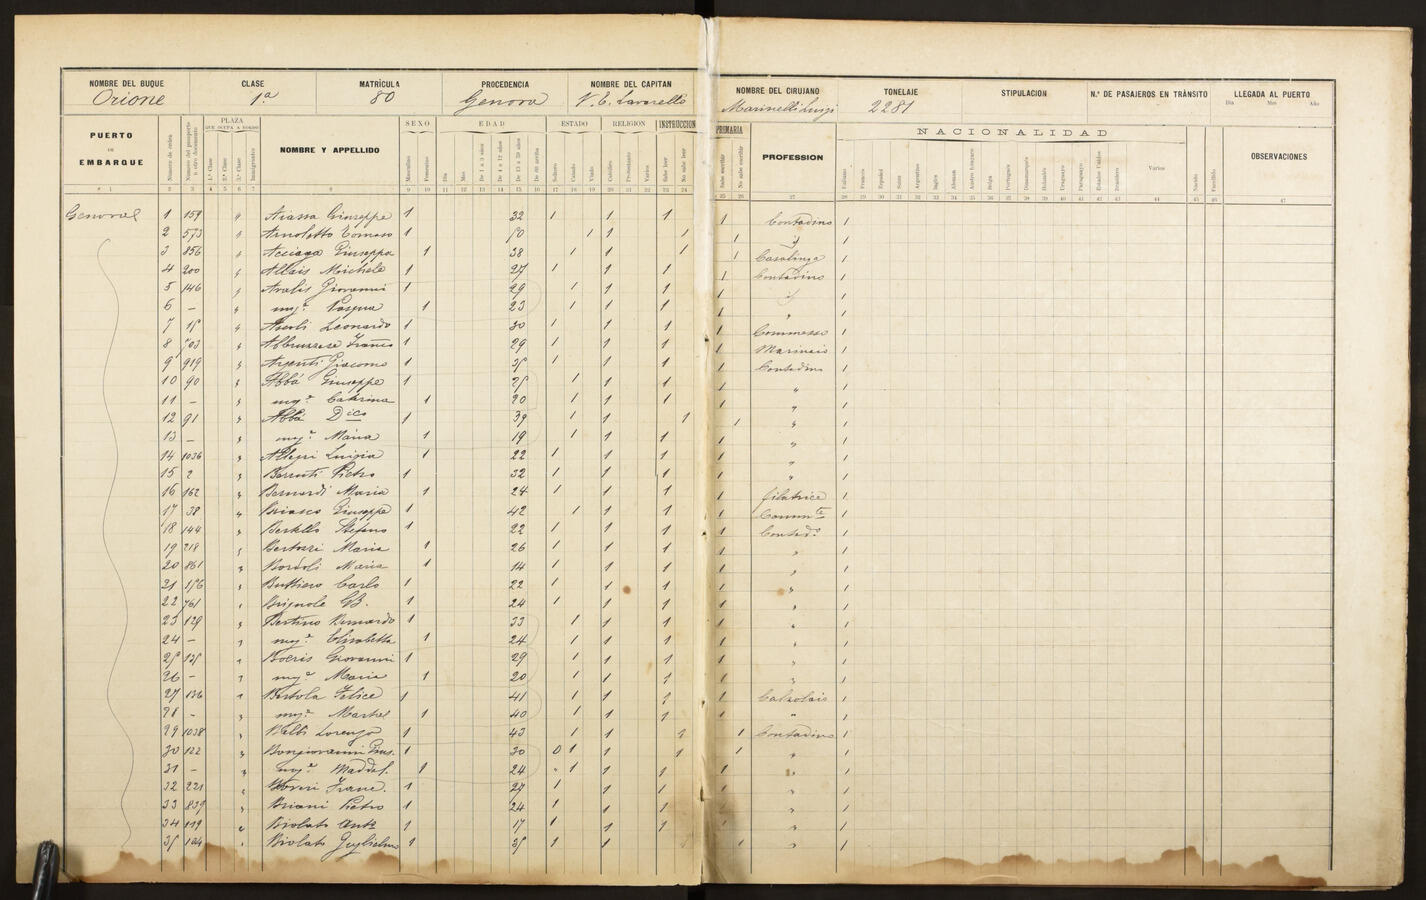 NOMBRE DEL BUQUE CLASE MATRÍCULA PROCEDENCIA NOMBRE DEL CAPITAN NOMBRE DEL CIRUJANO TONELAJE STIPULACION N.º DE PASAJEROS EN TRÁNSITO LLEGADA AL PUERTO
Orione 1.ª 80 Genova V. E. Lavarello Marinelli Luigi 2281 Dia Mes Año
PUERTO DE EMBARQUE Número de orden Número del pasaporte u otro documento PLAZA QUE OCUPA A BORDO 1.ª Clase 2.ª Clase 3.ª Clase Inmigrantes NOMBRE Y APPELLIDO SEXO Masculino Femenino EDAD Dia Mes De 1 a 3 años De 4 a 12 años De 13 a 59 años De 60 arriba ESTADO Soltero Casado Viudo RELIGION Católico Protestante Varios INSTRUCCION PRIMARIA Sabe leer No sabe leer Sabe escribir No sabe escribir PROFESSION NACIONALIDAD Italiano Francés Español Suizo Argentino Inglés Alemán Austro Húngaro Belga Portugués Dinamarqués Holandés Uruguayo Paraguayo Estados Unidos Brasilero Varios Nacido Fallecido OBSERVACIONES
1 2 3 4 5 6 7 8 9 10 11 12 13 14 15 16 17 18 19 20 21 22 23 24 25 26 27 28 29 30 31 32 33 34 35 36 37 38 39 40 41 42 43 44 45 46 47
1 159 " Giuseppe 1 32 1 1 1 1 Contadino 1
2 573 " Arnoletto Tomaso 1 1 1 1 1 1
3 856 " Giuseppa 1 38 1 1 1 1 Casalinga 1
4 200 " Allais Michele 1 27 1 1 1 1 Contadino 1
5 146 " Avalis Giovanni 1 29 1 1 1 1 1
6 - " mg.e Pasqua 1 23 1 1 1 1 " 1
7 15 " Ascoli Leonardo 1 30 1 1 1 1 Commesso 1
8 703 " Abbruzzese Franco 1 29 1 1 1 1 Marinaio 1
9 919 " Argenti Giacomo 1 35 1 1 1 1 Contadino 1
10 90 " Abbá Giuseppe 1 25 1 1 1 1 " 1
11 - " mg.e Caterina 1 20 1 1 1 1 " 1
12 91 " Abbá D.co 1 39 1 1 1 1 " 1
13 - " mg.e Maria 1 19 1 1 1 1 " 1
14 1036 " Allegri Luigia 1 22 1 1 1 1 " 1
15 2 " Barruti Pietro 1 32 1 1 1 1 " 1
16 162 " Bernardi Maria 1 24 1 1 1 1 filatrice 1
17 38 " Briasco Giuseppe 1 42 1 1 1 1 Comm.te 1
18 144 " Bertello Stefano 1 22 1 1 1 1 Contad.o 1
19 218 " Bertozzi Maria 1 26 1 1 1 1 " 1
20 861 " Bordoli Maria 1 14 1 1 1 1 " 1
21 156 " Buttiero Carlo 1 22 1 1 1 1 " 1
22 761 " Brignole GB. 1 24 1 1 1 1 " 1
23 129 " Bertino Bernardo 1 33 1 1 1 1 " 1
24 - " mg.e Elisabetta 1 24 1 1 1 1 " 1
25 135 " Boeris Giovanni 1 29 1 1 1 1 " 1
26 - " mg.e Maria 1 20 1 1 1 1 " 1
27 136 " Bertola Felice 1 41 1 1 1 1 Calzolaio 1
28 - " mg.e 1 40 1 1 1 1 " 1
29 1038 " Balbi Lorenzo 1 43 1 1 1 1 Contadino 1
30 122 " Bongiovanni Gius. 1 30 0 1 1 1 1 " 1
31 - " mg.e Maddal. 1 24 " 1 1 1 1 " 1
32 221 " Franc. 1 27 1 1 1 1 " 1
33 839 " Briani Pietro 1 24 1 1 1 1 " 1
34 119 " Biolato Ant.o 1 17 1 1 1 1 " 1
35 104 " Biolato Guglielmo 1 35 1 1 1 1 " 1